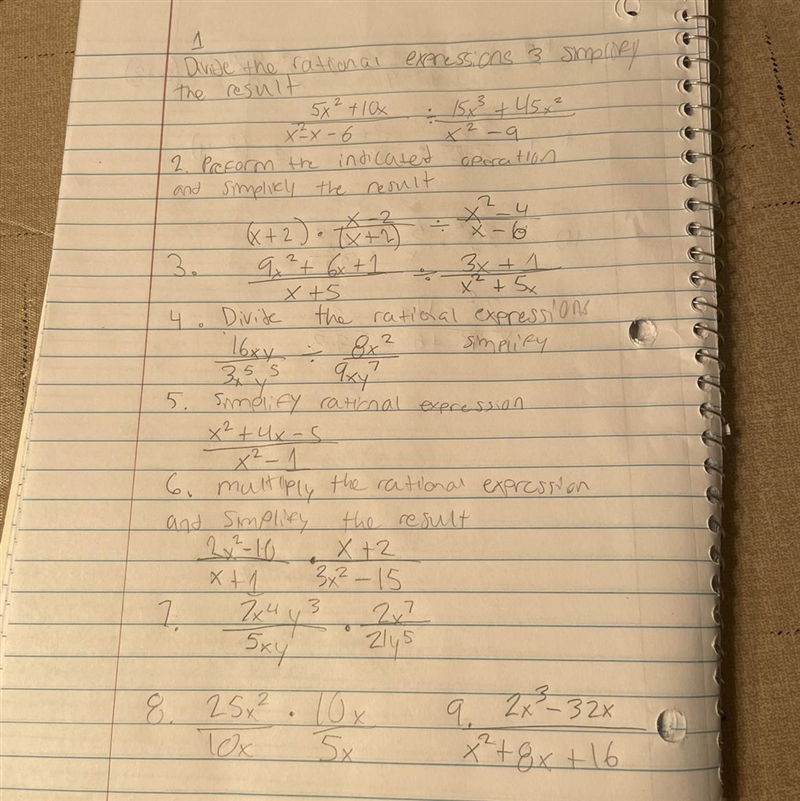 1
Divide the rational expressions & simplify
the result
5x² + 10x / x² - x - 6 ÷ 15x³ + 45x² / x² - 9
2. Preform the indicated operation
and simplify the result
(x + 2) · x - 2 / (x + 2) ÷ x² - 4 / x - 6
3. 9x² + 6x + 1 / x + 5 ÷ 3x + 1 / x² + 5x
4. Divide the rational expressions
simplify
16xy / 3x⁵y⁵ ÷ 8x² / 9xy⁷
5. simplify rational expression
x² + 4x - 5 / x² - 1
6. multiply the rational expression
and simplify the result
2x² - 10 / x + 1 · x + 2 / 3x² - 15
7. 7x⁴y³ / 5xy · 2x⁷ / 21y⁵
8. 25x² / 10x · 10x / 5x 9. 2x³ - 32x / x² + 8x + 16